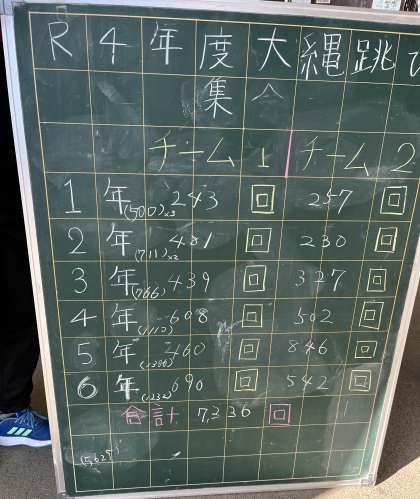 R4年度大縄跳び
集会
チーム1 チーム2
1年(500)×3 243回 257回
2年(711)×2 481回 230回
3年(766) 439回 327回
4年(1110) 608回 502回
5年(1306) 460回 846回
6年(1232) 690回 542回
合計 7,336回
(5,625)